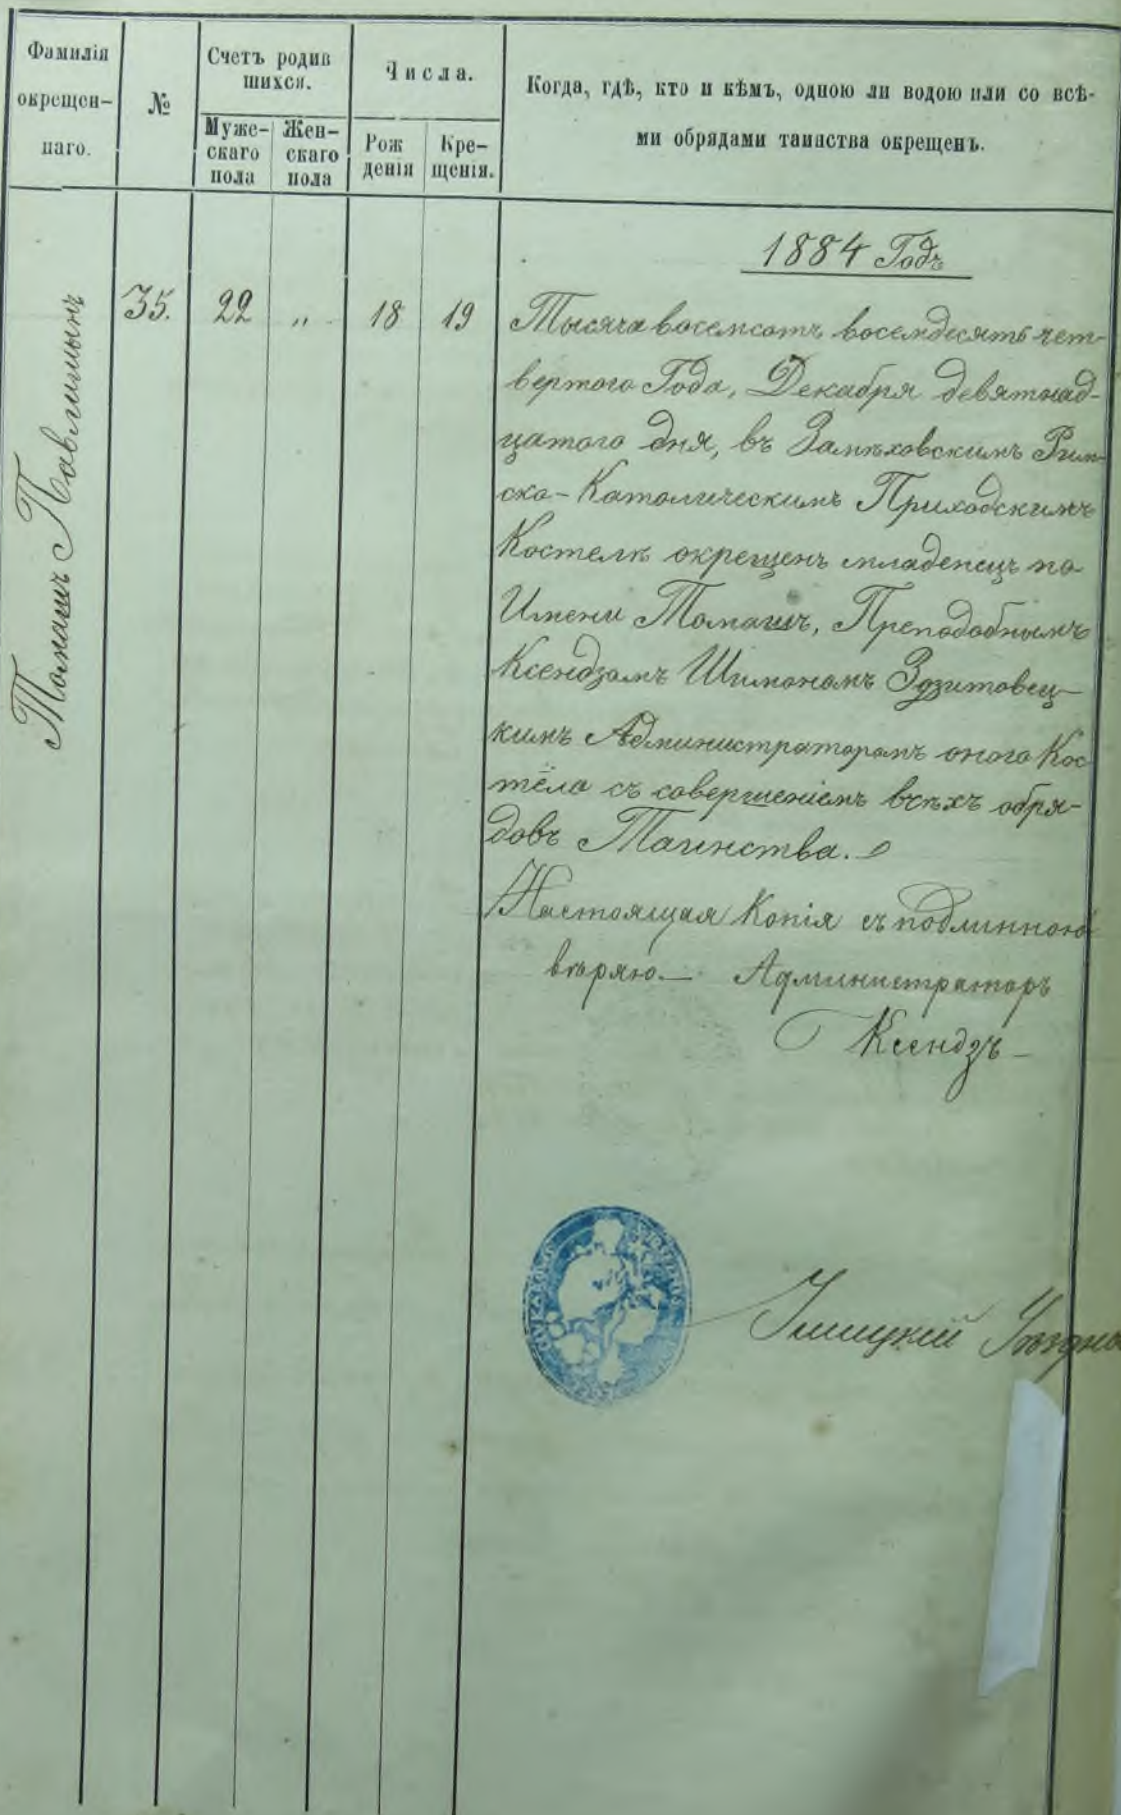 Фамилія
окрещен-
наго.
№
Счетъ родив
шихся.
Муже-
скаго
пола
Жен-
скаго
пола
Числа.
Рож
денія
Кре-
щенія.
Когда, гдѣ, кто и кѣмъ, одною ли водою или со всѣ-
ми обрядами таинства окрещенъ.
1884 Годъ
Томашъ
35.
22
"
18
19
Тысяча восемсотъ восемдесятъ чет-
вертого Года, Декабря девятнад-
цатого дня, въ Замѣховскимъ Рим-
ско-Католическимъ Приходскимъ
Костелѣ окрещенъ младенецъ по
Имени Томашъ, Преподобнымъ
Ксендзомъ Шимономъ Здзитовец-
кимъ Администраторомъ оного Кос
тёла съ совершеніемъ всѣхъ обря-
довъ Таинства.
Настоящая Копія съ подлинною
вѣряю. Администраторъ
Ксендзъ